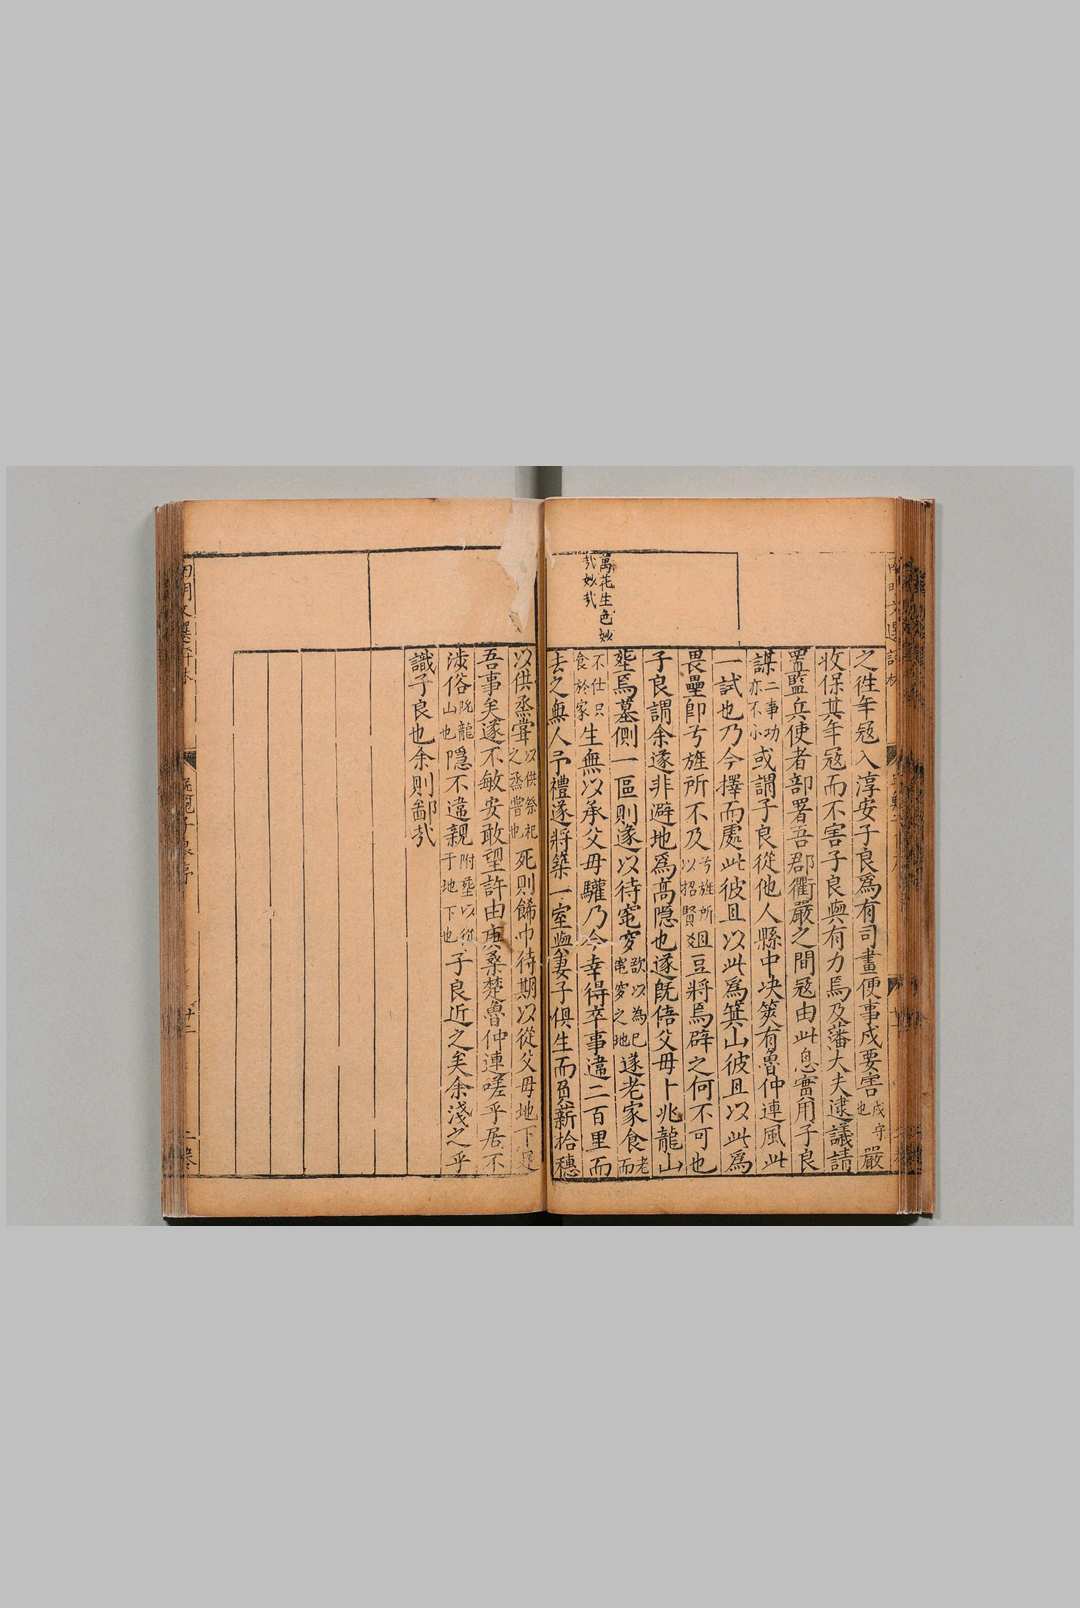 萬花生色妙
哉妙哉
之往年寇入淳安子良爲有司畫便事戍要害戍守也嚴
收保其年寇而不害子良與有力焉及藩大夫逮議請
置監兵使者部署吾郡衢嚴之間寇由此息實用子良
謀二事功亦不小或謂子良從他人縣中决筴有魯仲連風此
一試也乃今擇而處此彼且以此爲箕山彼且以此爲
畏壘即弓旌所不及弓旌所以招賢爼豆將焉辟之何不可也
子良謂余遂非避地爲高隐也遂旣倍父母卜兆龍山
塟焉墓側一區則遂以待窀穸欲以為已窀穸之地遂老家食老而
不仕只食於家生無以承父母驩乃今幸得卒事違二百里而
去之無人予禮遂將築一室與妻子俱生而負薪拾穗
以供烝嘗以供祭祀之烝嘗也死則餙巾待期以從父母地下足
吾事矣遂不敏安敢望許由庚桑楚魯仲連嗟乎居不
涉俗旣龍山也隱不違親附塟以從于地下也子良近之矣余淺之乎
識子良也余則鄙哉
二卷